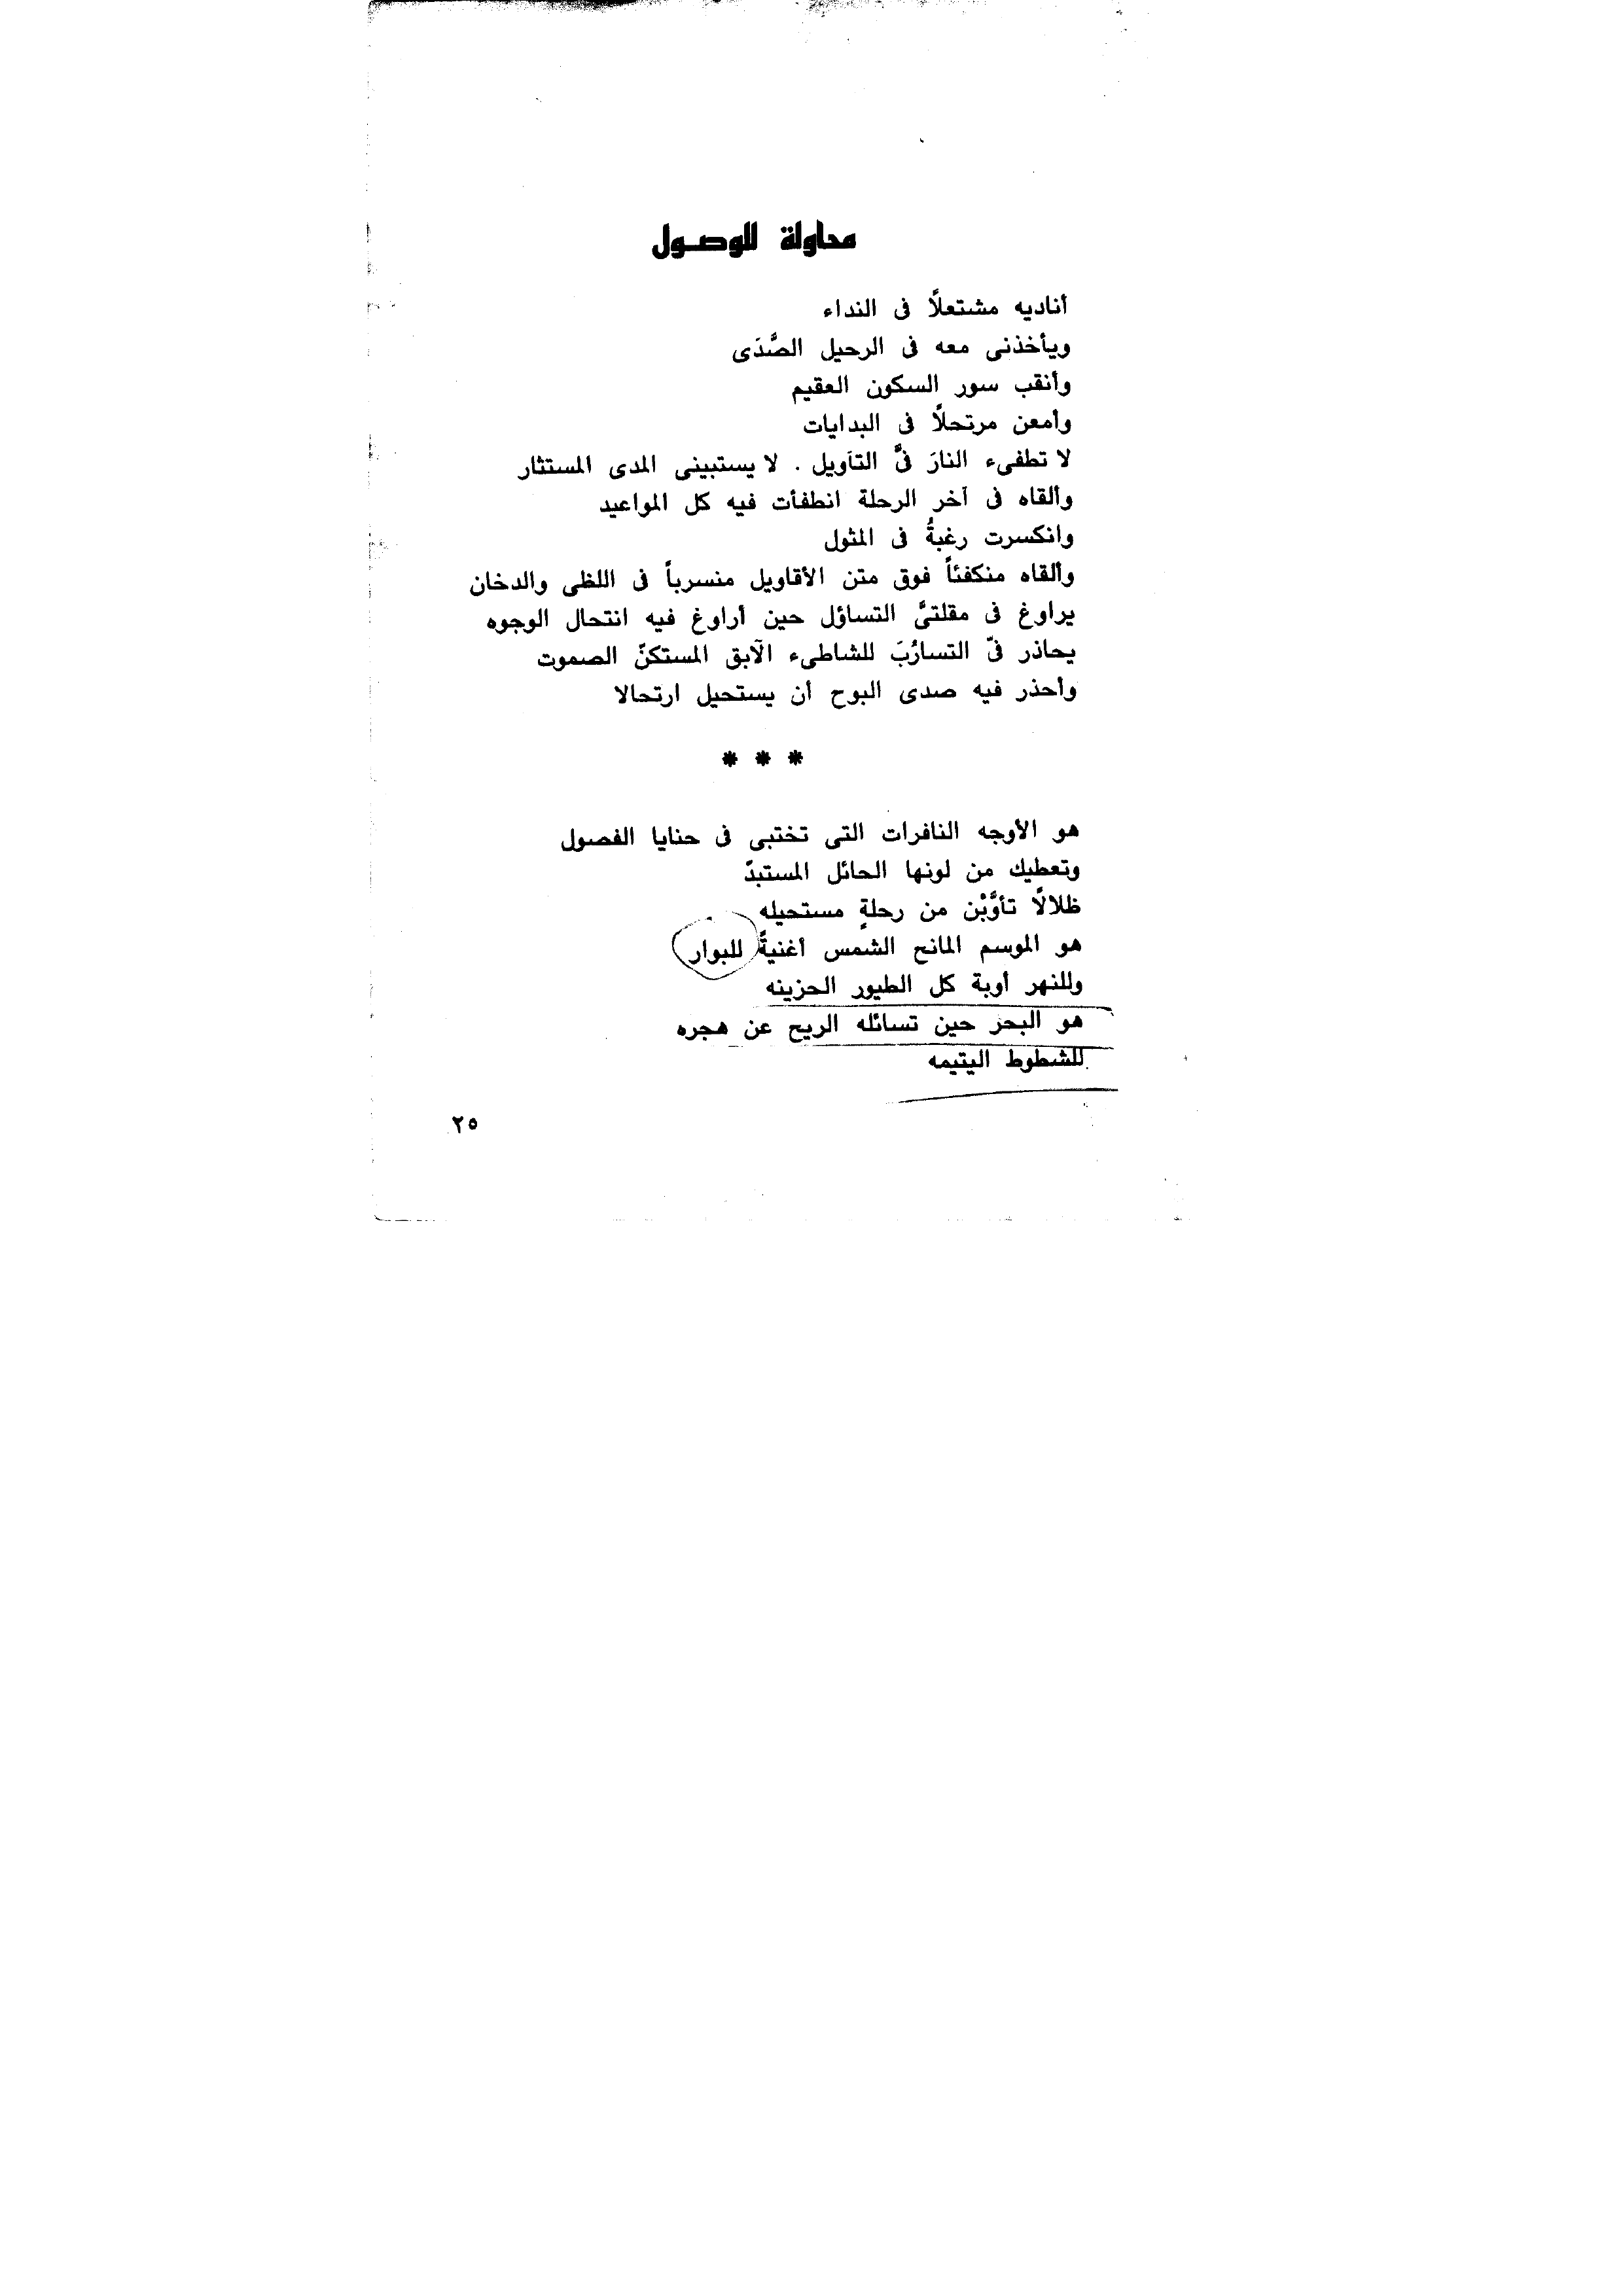 محاولة للوصول
أناديه مشتعلًا فى النداء
ويأخذنى معه فى الرحيل الصَّدَى
وأنقب سور السكون العقيم
وأمعن مرتحلًا فى البدايات
لا تطفىء النارَ فىَّ التآويل . لا يستبينى المدى المستثار
وألقاه فى آخر الرحلة انطفأت فيه كل المواعيد
وانكسرت رغبةُ فى المثول
وألقاه منكفئاً فوق متن الأقاويل منسرباً فى اللظى والدخان
يراوغ فى مقلتىَّ التساؤل حين أراوغ فيه انتحال الوجوه
يحاذر فىّ التسارُبَ للشاطىء الآبق المستكنّ الصموت
وأحذر فيه صدى البوح أن يستحيل ارتحالا
* * *
هو الأوجه النافرات التى تختبى فى حنايا الفصول
وتعطيك من لونها الحائل المستبدّ
ظلالًا تأوَّبْن من رحلةٍ مستحيله
هو الموسم المانح الشمس أغنيةً للبوار
وللنهر أوبة كل الطيور الحزينه
هو البحر حين تسائله الريح عن هجره
للشطوط اليتيمه
٢٥